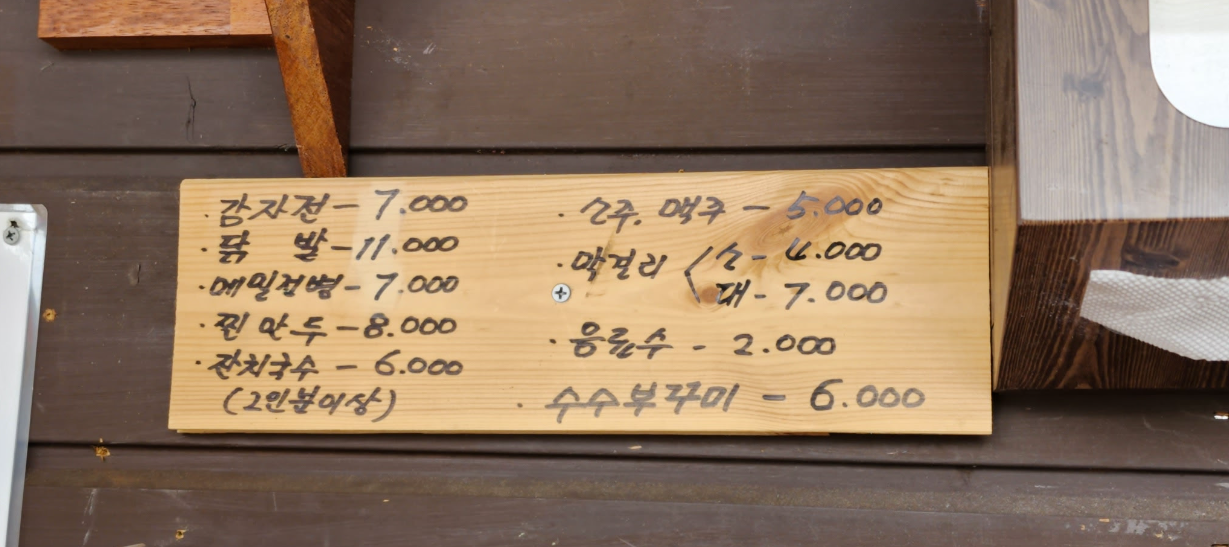 · 감자전 - 7.000
· 닭 발 - 11.000
· 메밀전병 - 7.000
· 찐만두 - 8.000
· 잔치국수 - 6.000
(2인분이상)
· 소주. 맥주 - 5.000
· 막걸리 < 소 - 4.000
대 - 7.000
· 음료수 - 2.000
· 수수부꾸미 - 6.000